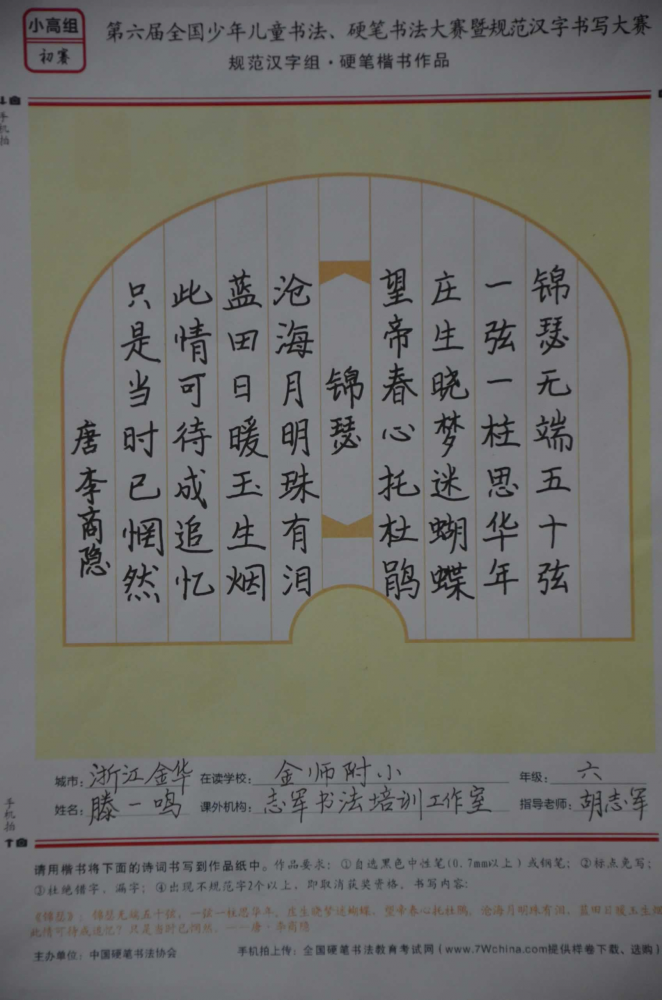 小高组
初赛
第六届全国少年儿童书法、硬笔书法大赛暨规范汉字书写大赛
规范汉字组·硬笔楷书作品
手机拍
锦瑟无端五十弦
一弦一柱思华年
庄生晓梦迷蝴蝶
望帝春心托杜鹃
锦瑟
沧海月明珠有泪
蓝田日暖玉生烟
此情可待成追忆
只是当时已惘然
唐李商隐
城市：浙江金华 在读学校：金师附小 年级：六
姓名：滕一鸣 课外机构：志军书法培训工作室 指导老师：胡志军
手机拍
请用楷书将下面的诗词书写到作品纸中。作品要求：①自选黑色中性笔(0.7mm以上)或钢笔；②标点免写；
③杜绝错字、漏字；④出现不规范字2个以上，即取消获奖资格，书写内容：
《锦瑟》：锦瑟无端五十弦，一弦一柱思华年。庄生晓梦迷蝴蝶，望帝春心托杜鹃。沧海月明珠有泪，蓝田日暖玉生烟
此情可待成追忆？只是当时已惘然。——唐·李商隐
主办单位：中国硬笔书法协会 手机拍上传：全国硬笔书法教育考试网（www.7Wchina.com提供样卷下载、选购）